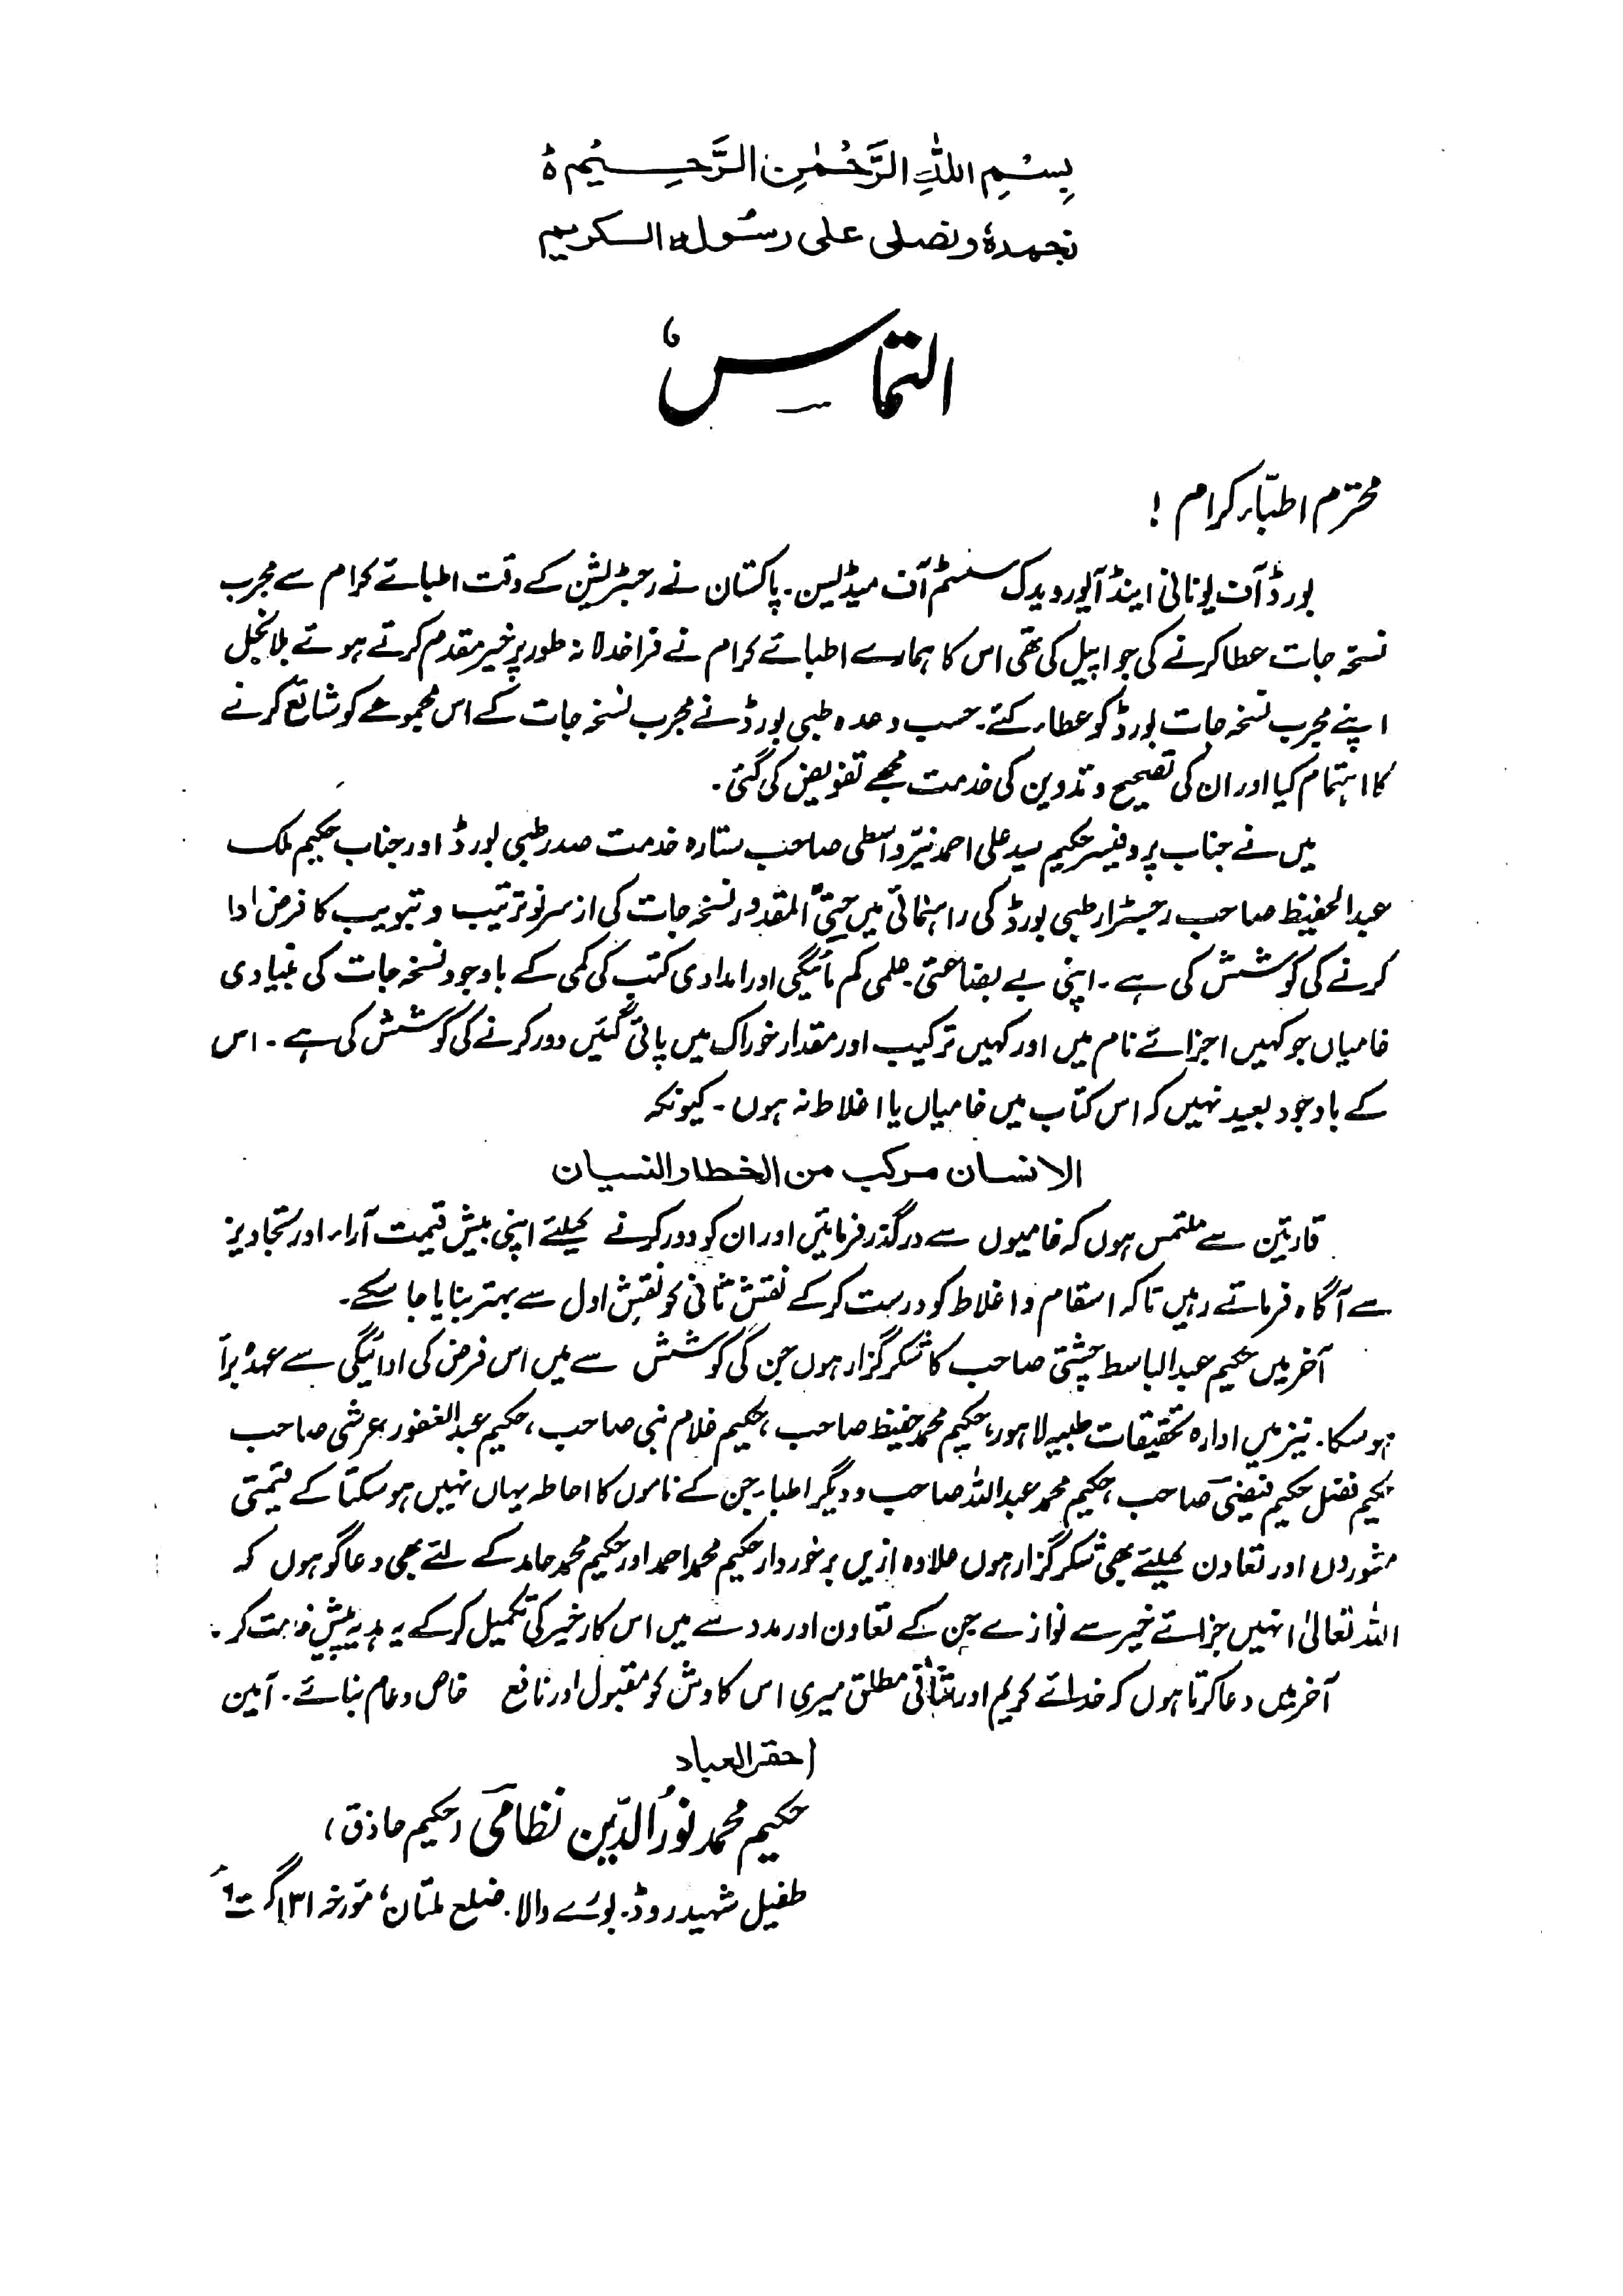 بِسْمِ اللّٰهِ الرَّحْمٰنِ الرَّحِيْمِ ۀ
نحمدہٗ و نصلی علی رسُولہ الکریم
التماس
محترم اطبّاء کرام !
بورڈ آف یونانی اینڈ آیورویدک سسٹم آف میڈلیسن۔ پاکستان نے رجسٹریشن کے وقت اطبائے کرام سے مجرب
نسخہ جات عطا کرنے کی جو اپیل کی تھی اس کا ہمارے اطبائے کرام نے فراخدلانہ طور پر خیر مقدم کرتے ہوئے بلا بخل
اپنے مجرب نسخہ جات بورڈ کو عطاء کئے۔ حسب وعدہ طبی بورڈ نے مجرب نسخہ جات کے اس مجموعے کو شائع کرنے
کا اہتمام کیا اور ان کی تصحیح و تدوین کی خدمت مجھے تفویض کی گئی۔
میں نے جناب پروفیسر حکیم سید علی احمد نیّر واسطی صاحب ستارہ خدمت صدر طبی بورڈ اور جناب حکیم ملک
عبدالحفیظ صاحب رجسٹرار طبی بورڈ کی راہنمائی میں حتیَّ المقدور نسخہ جات کی از سر نو ترتیب و تبویب کا فرض ادا
کرنے کی کوشش کی ہے۔ اپنی بے بضاعتی۔ علمی کم مائیگی اور امدادی کتب کی کمی کے باوجود نسخہ جات کی بنیادی
خامیاں جو کہیں اجزائے نام میں اور کہیں ترکیب اور مقدار خوراک میں پائی گئیں دور کرنے کی کوشش کی ہے۔ اس
کے باوجود بعید نہیں کہ اس کتاب میں خامیاں یا اغلاط نہ ہوں۔ کیونکہ
الانسان مرکب من الخطاء والنسیان
قارئین سے ملتمس ہوں کہ خامیوں سے درگذر فرمائیں اور ان کو دور کرنے کیلئے اپنی بیش قیمت آراء اور تجاویز
سے آگاہ فرماتے رہیں تاکہ اسقام و اغلاط کو درست کر کے نقش ثانی کو نقش اول سے بہتر بنایا جا سکے۔
آخر میں حکیم عبدالباسط چشتی صاحب کا شکر گزار ہوں جن کی کوشش سے میں اس فرض کی ادائیگی سے عہدہ برآ
ہو سکا۔ نیز میں ادارہ تحقیقات طبیہ لاہور، حکیم محمد حفیظ صاحب، حکیم غلام نبی صاحب، حکیم عبدالغفور عرشی صاحب
حکیم فضل حکیم فیضیؔ صاحب، حکیم محمد عبداللہ صاحب و دیگر اطباء جن کے ناموں کا احاطہ یہاں نہیں ہو سکتا کے قیمتی
مشوروں اور تعاون کیلئے بھی شکر گزار ہوں علاوہ ازیں برخوردار حکیم محمد احمد اور حکیم محمد حامد کے لئے بھی دعا گو ہوں کہ
اللہ تعالیٰ انہیں جزائے خیر سے نوازے جن کے تعاون اور مدد سے میں اس کار خیر کی تکمیل کر کے یہ ہدیہ پیش
آخر میں دعا کرتا ہوں کہ خدائے کریم اور شافی مطلق میری اس کاوش کو مقبول اور نافع خاص و عام بنائے۔ آمین
احقر العباد
حکیم محمد نورُ الدّین نظامیؔ (حکیم حاذق)
طفیل شہید روڈ۔ بورے والا۔ ضلع ملتان، مورخہ ۳۱ اگست